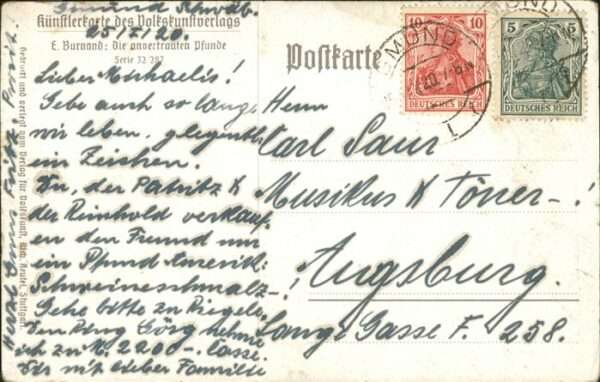 Gmünd Schwäb.
25/7/20.
Künstlerkarte des Volkskunstverlags
E. Burnand: Die anvertrauten Pfunde
Serie 32 287
Postkarte
Lieber Michaelis!
Gebe auch so lange
wir leben, glegentl.
ein Zeichen.
Du, der Patritz &
der Reinhold verkauf-
en den Freund um
ein Pfund Amerik:
Schweineschmalz-!
Gehe bitte zu Riegele,
den Ring Görg hehme
ich zu M. 2200-. lasse.
Dir mit lieber Familie
Herrn
Carl Saur
Musikus & Töner-!
Augsburg.
Lange Gasse F. 258.
GMÜND
20.7
10
10
DEUTSCHES REICH
GMÜND
5
5
DEUTSCHES REICH
Gedruckt und verlegt vom Verlag für Volkskunst, Rich. Keutel, Stuttgart.